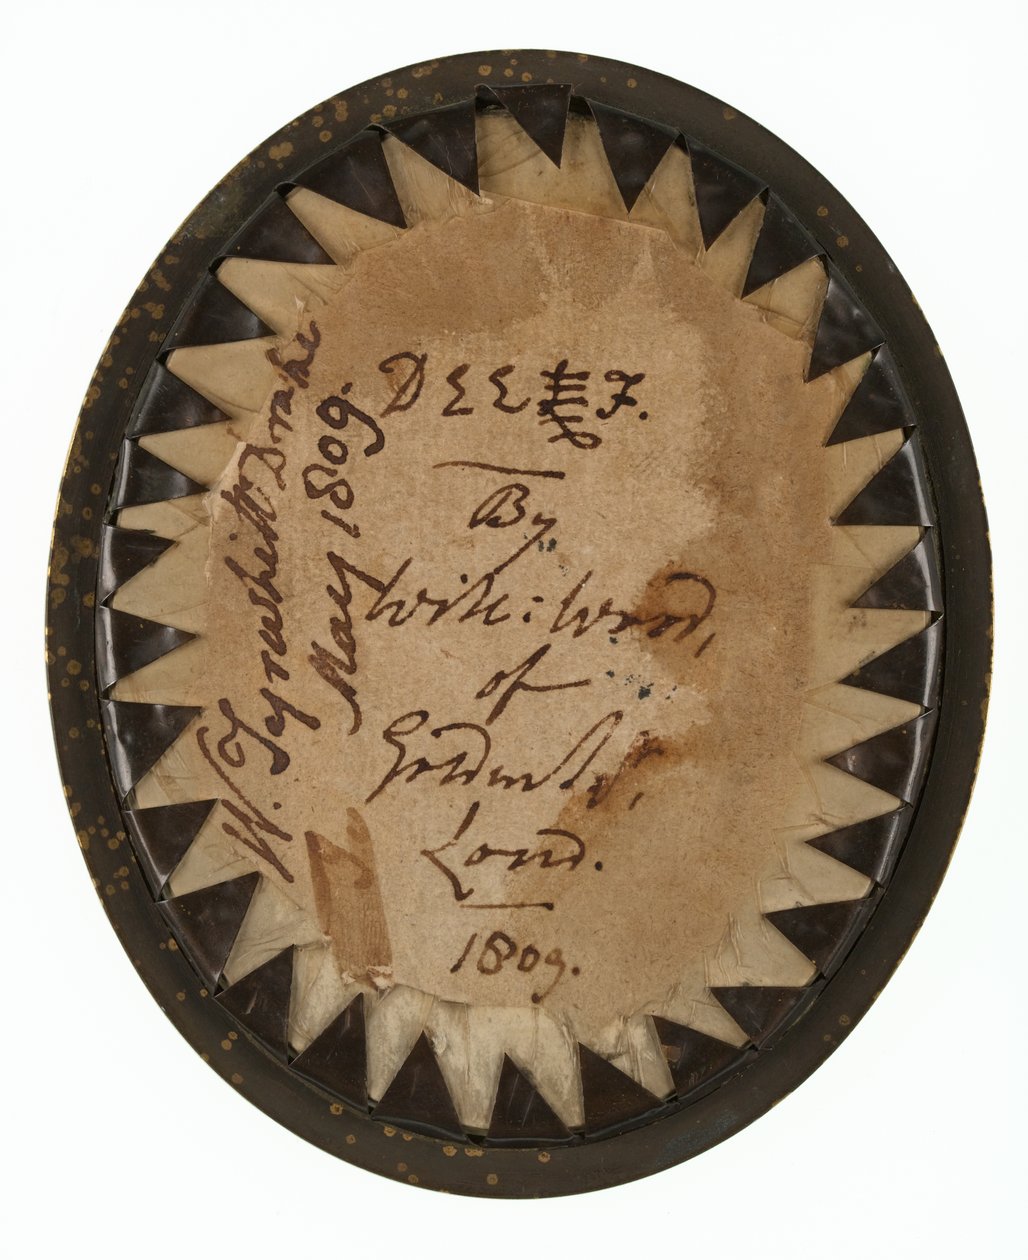 D E E F.
By
Will: Wood,
of
Golden Sqr,
Lond.
1809.
W. Tyrwhitt Drake
May 1809.